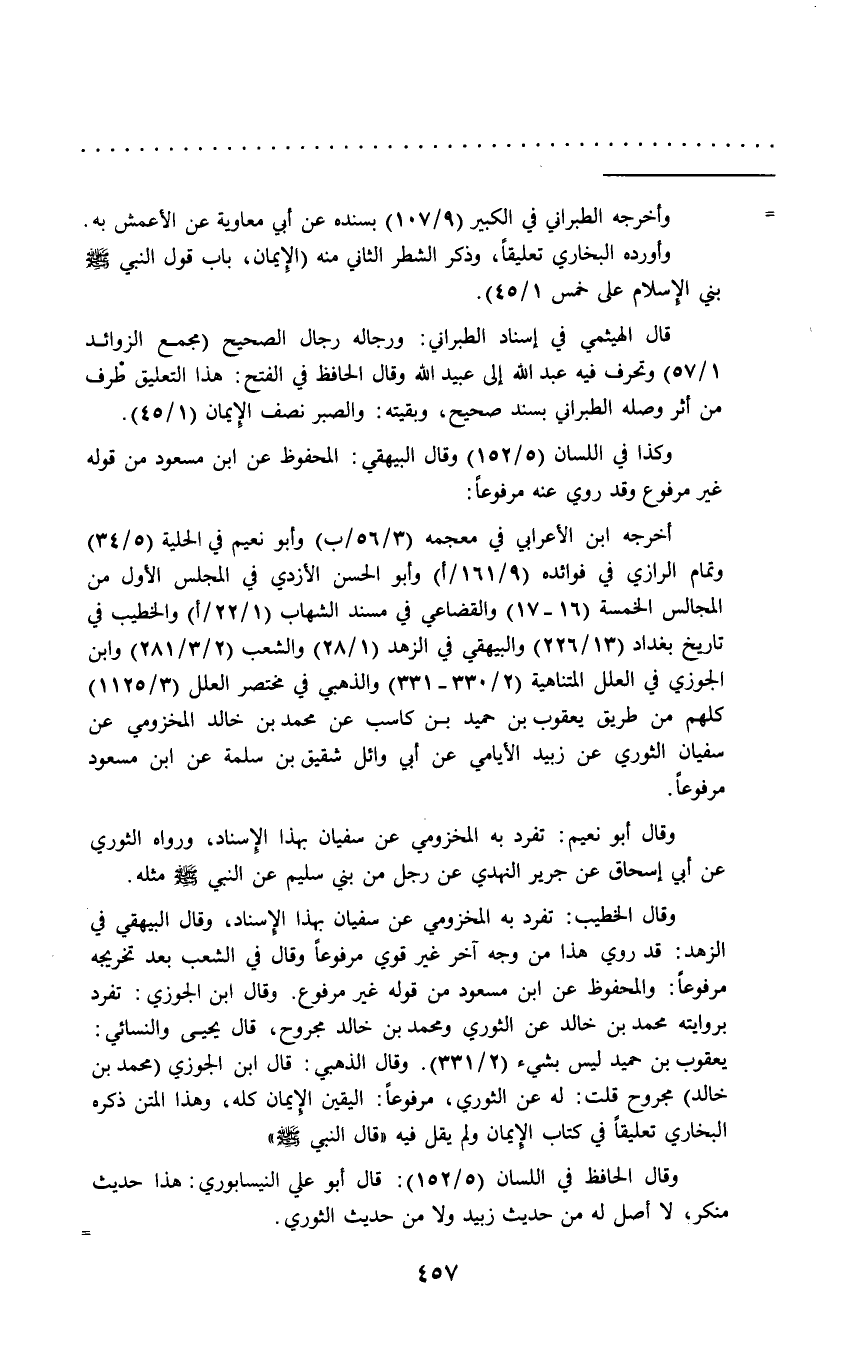 = وأخرجه الطبراني في الكبير (١٠٧/٩) بسنده عن أبي معاوية عن الأعمش به.
وأورده البخاري تعليقاً، وذكر الشطر الثاني منه (الإيمان، باب قول النبي ﷺ
بني الإسلام على خمس ٤٥/١).
قال الهيثمي في إسناد الطبراني: ورجاله رجال الصحيح (مجمع الزوائد
٥٧/١) وتحرف فيه عبد الله إلى عبيد الله وقال الحافظ في الفتح: هذا التعليق طْرف
من أثر وصله الطبراني بسند صحيح، وبقيته: والصبر نصف الإيمان (٤٥/١).
وكذا في اللسان (١٥٢/٥) وقال البيهقي: المحفوظ عن ابن مسعود من قوله
غير مرفوع وقد روي عنه مرفوعاً:
أخرجه ابن الأعرابي في معجمه (٥٦/٣/ب) وأبو نعيم في الحلية (٣٤/٥)
وتمام الرازي في فوائده (١٦١/٩/أ) وأبو الحسن الأزدي في المجلس الأول من
المجالس الخمسة (١٦ - ١٧) والقضاعي في مسند الشهاب (٢٢/١/أ) والخطيب في
تاريخ بغداد (٢٢٦/١٣) والبيهقي في الزهد (٢٨/١) والشعب (٢٨١/٣/٢) وابن
الجوزي في العلل المتناهية (٣٣٠/٢ - ٣٣١) والذهبي في مختصر العلل (١١٢٥/٣)
كلهم من طريق يعقوب بن حميد بن كاسب عن محمد بن خالد المخزومي عن
سفيان الثوري عن زبيد الأيامي عن أبي وائل شقيق بن سلمة عن ابن مسعود
مرفوعاً.
وقال أبو نعيم: تفرد به المخزومي عن سفيان بهذا الإسناد، ورواه الثوري
عن أبي إسحاق عن جرير النهدي عن رجل من بني سليم عن النبي ﷺ مثله.
وقال الخطيب: تفرد به المخزومي عن سفيان بهذا الإسناد، وقال البيهقي في
الزهد: قد روي هذا من وجه آخر غير قوي مرفوعاً وقال في الشعب بعد تخريجه
مرفوعاً: والمحفوظ عن ابن مسعود من قوله غير مرفوع. وقال ابن الجوزي: تفرد
بروايته محمد بن خالد عن الثوري ومحمد بن خالد مجروح، قال يحيى والنسائي:
يعقوب بن حميد ليس بشيء (٣٣١/٢). وقال الذهبي: قال ابن الجوزي (محمد بن
خالد) مجروح قلت: له عن الثوري، مرفوعاً: اليقين الإيمان كله، وهذا المتن ذكره
البخاري تعليقاً في كتاب الإيمان ولم يقل فيه «قال النبي ﷺ»
وقال الحافظ في اللسان (١٥٢/٥): قال أبو علي النيسابوري: هذا حديث
منكر، لا أصل له من حديث زبيد ولا من حديث الثوري.
=
٤٥٧